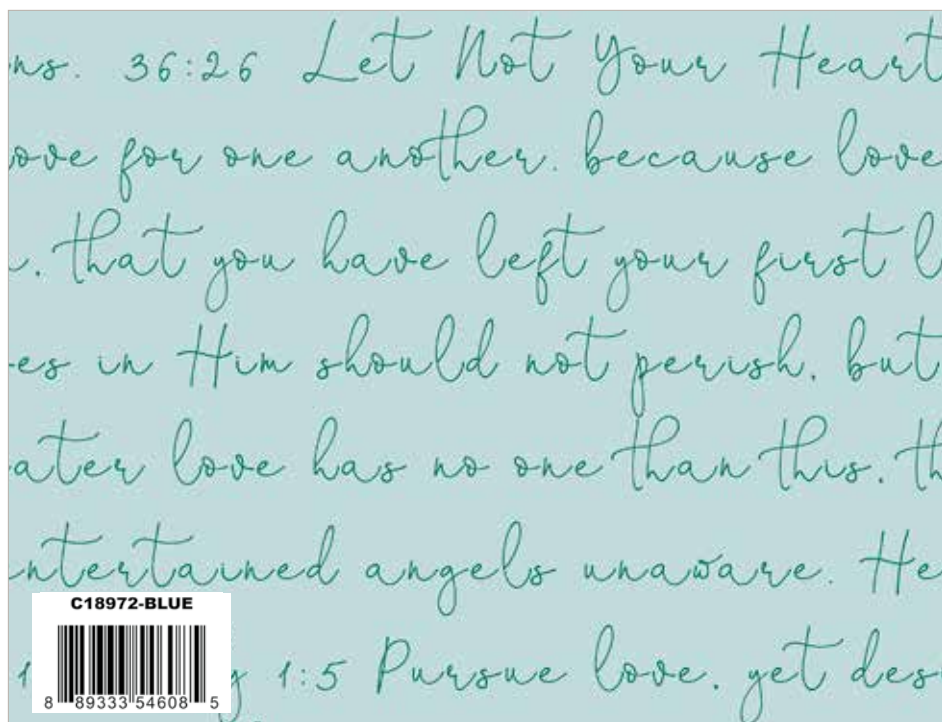 ns. 36:26 Let Not Your Heart
ove for one another. because love
. that you have left your first l
es in Him should not perish. but
ater love has no one than this. th
ntertained angels unaware. He
1 y 1:5 Pursue love. yet des
C18972-BLUE
8 89333 54608 5